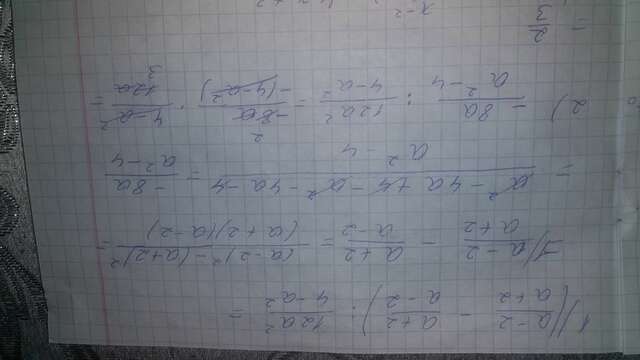 1) ((a-2)/(a+2) - (a+2)/(a-2)) : 12a²/(4-a²) =
1) (a-2)/(a+2) - (a+2)/(a-2) = ((a-2)²-(a+2)²)/((a+2)(a-2)) =
= (a²-4a+4-a²-4a-4)/(a²-4) = -8a/(a²-4)
2) -8a/(a²-4) : 12a²/(4-a²) = -8a/-(4-a²) · (4-a²)/12a =
2 3
= 2/3